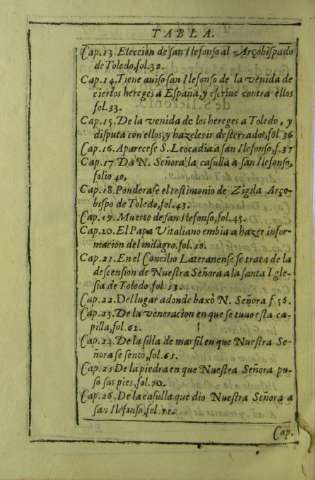 TABLA.
Cap.13. Eleccion de san Ilefonso al Arçobispado
de Toledo, fol.32.
Cap.14. Tiene auiso san Ilefonso de la venida de
ciertos hereges a España, y escriue contra ellos
fol.33.
Cap.15. De la venida de los hereges a Toledo, y
disputa con ellos, y hazelos ir desterrados, fol.36
Cap.16. Aparecese S. Leocadia a san Ilefonso, f.37
Cap.17. Da N. Señora la casulla a san Ilefonso,
folio 40.
Cap.18. Ponderase el testimonio de Zigila Arço-
bispo de Toledo, fol.43.
Cap.19. Muerte de san Ilefonso, fol.45.
Cap.20. El Papa Vitaliano embia a hazer infor-
macion del milagro, fol.
Cap.21. En el Concilio Lateranense se trata de la
descension de Nuestra Señora a la santa Igle-
sia de Toledo, fol.
Cap.22. Del lugar adonde baxò N. Señora f.56.
Cap.23. De la veneracion en que se tuuo esta ca-
pilla, fol.62.
Cap.24. De la silla de marfil en que Nuestra Se-
ñora se sento, fol.65.
Cap.25. De la piedra en que Nuestra Señora pu-
so sus pies, fol.70.
Cap.26. De la casulla que dio Nuestra Señora a
san Ilefonso, fol.
Cap.